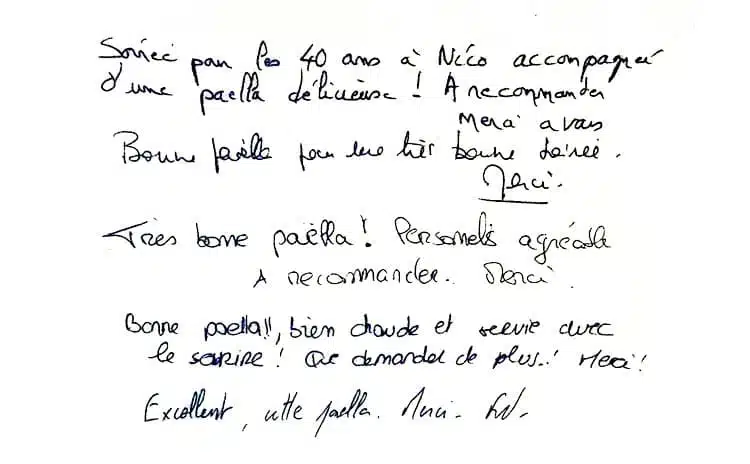 Soirée pour les 40 ans à Nico accompagné
d'une paella délicieuse ! A recommander
Merci a vous
Bonne paëlla pour une très bonne soirée.
Merci.
Très bonne paëlla! Personels agréable
A recommander. Merci.
Bonne paella!!, bien chaude et servie avec
le sourire! Que demander de plus..! Merci!
Excellent, cette paella. Merci-